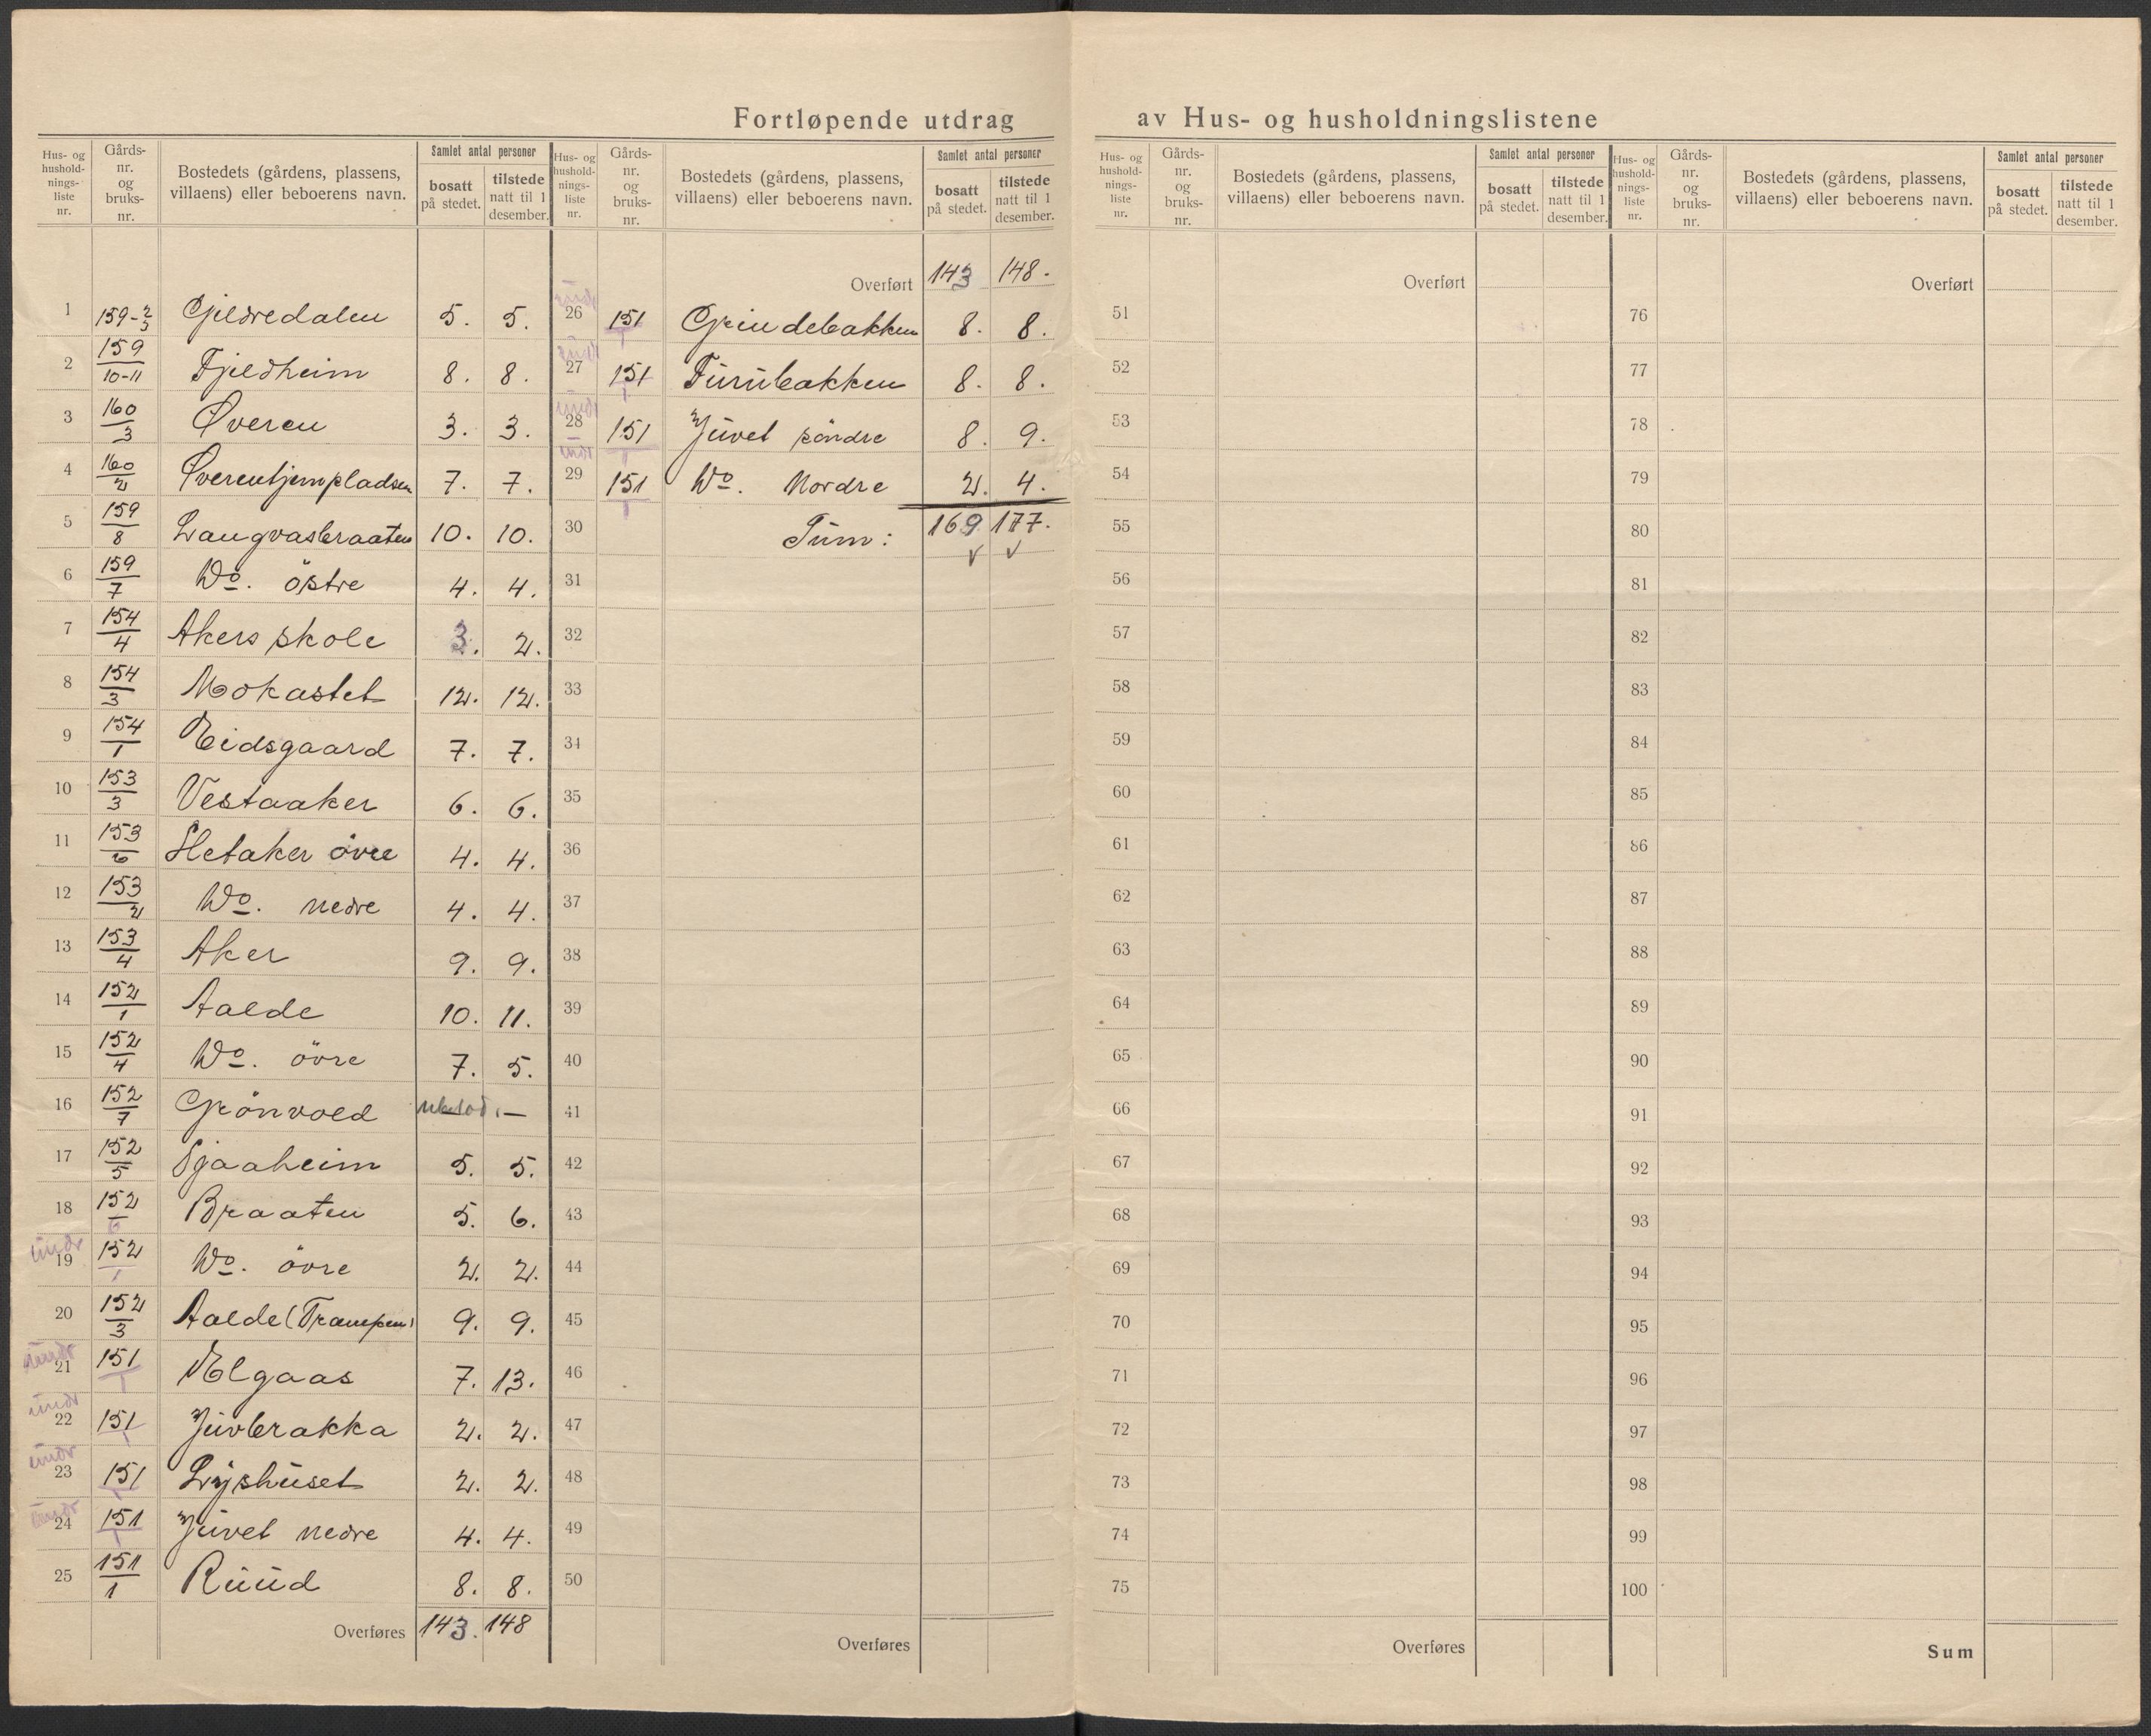 Fortløpende utdrag av Hus- og husholdningslistene
Hus- og hushold-nings-liste nr. Gårds-nr. og bruks-nr. Bostedets (gårdens, plassens, villaens) eller beboerens navn. Samlet antal personer bosatt på stedet. tilstede natt til 1 desember.
1 159-2/3 Gjeldredalen 5. 5.
2 159/10-11 Fjeldheim 8. 8.
3 160/3 Øveren 3. 3.
4 160/2 Øverentjernpladsen 7. 7.
5 159/8 Langvasbraaten 10. 10.
6 159/7 Do. östre 4. 4.
7 154/4 Akers skole 3. 2.
8 154/3 Mokastet 12. 12.
9 154/1 Eidsgaard 7. 7.
10 153/3 Vestaaker 6. 6.
11 153/6 Sletaker övre 4. 4.
12 153/2 Do. nedre 4. 4.
13 153/4 Aker 9. 9.
14 152/1 Aalde 10. 11.
15 152/4 Do. övre 7. 5.
16 152/7 Grönvold ubebod. —
17 152/5 Sjaaheim 5. 5.
18 152/6 Braaten 5. 6.
undr
19 152/1 Do. övre 2. 2.
20 152/3 Aalde (Trampen) 9. 9.
undr
21 151/1 Elgaas 7. 13.
undr
22 151/1 Juvbrakka 2. 2.
undr
23 151/1 Lyshuset 2. 2.
undr
24 151/1 Juvet nedre 4. 4.
25 151/1 Ruud 8. 8.
Overføres 143. 148
Hus- og hushold-nings-liste nr. Gårds-nr. og bruks-nr. Bostedets (gårdens, plassens, villaens) eller beboerens navn. Samlet antal personer bosatt på stedet. tilstede natt til 1 desember.
Overført 143 148.
undr
26 151/1 Grindebakken 8. 8.
undr
27 151/1 Furubakken 8. 8.
undr
28 151/1 Juvet söndre 8. 9.
undr
29 151/1 Do. Nordre 2. 4.
30 Sum: 169 177.
31
32
33
34
35
36
37
38
39
40
41
42
43
44
45
46
47
48
49
50
Overføres
Hus- og hushold-nings-liste nr. Gårds-nr. og bruks-nr. Bostedets (gårdens, plassens, villaens) eller beboerens navn. Samlet antal personer bosatt på stedet. tilstede natt til 1 desember.
Overført
51
52
53
54
55
56
57
58
59
60
61
62
63
64
65
66
67
68
69
70
71
72
73
74
75
Overføres
Hus- og hushold-nings-liste nr. Gårds-nr. og bruks-nr. Bostedets (gårdens, plassens, villaens) eller beboerens navn. Samlet antal personer bosatt på stedet. tilstede natt til 1 desember.
Overført
76
77
78
79
80
81
82
83
84
85
86
87
88
89
90
91
92
93
94
95
96
97
98
99
100
Sum